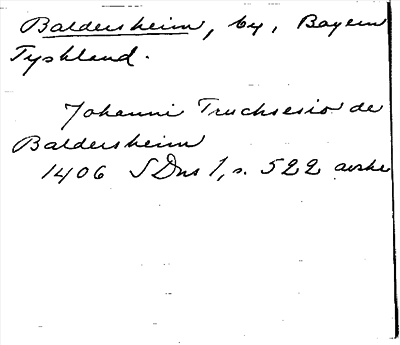 Baldersheim, by, Bayern
Tyskland.
Johanni Truchsesio de
Baldersheim
1406 SDns 1, s. 522 avskr